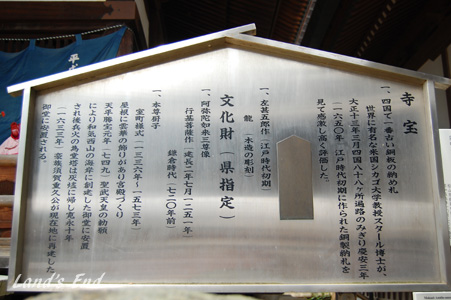 寺宝
一、四国で一番古い銅板の納め札
世界に有名な米国シカゴ大学教授スタール博士が、
大正十三年三月四国八十八ヶ所遍路のみぎり慶安三年
(一六五〇年)江戸時代初期に作られた銅製納札を
見て感激し高く評価した。
一、左甚五郎作(江戸時代初期)
龍(木造の彫刻)
文化財(県指定)
一、阿弥陀如来三尊像
行基菩薩作(延長二年七月(一二五一年)
鎌倉時代(七二〇年前)
一、本尊厨子
室町様式(一三三六年〜一五七三年)
屋根に雲薬の飾りがあり宮殿づくり
天平勝宝元年(七四九)聖武天皇の勅願
により和気西山の海岸に創建した御堂に安置
され後兵火の為堂塔は灰燼に帰し寛永十年
(一六三三年)豪族須賀重久公が現在地に再建した
御堂に安置される。
Land's End